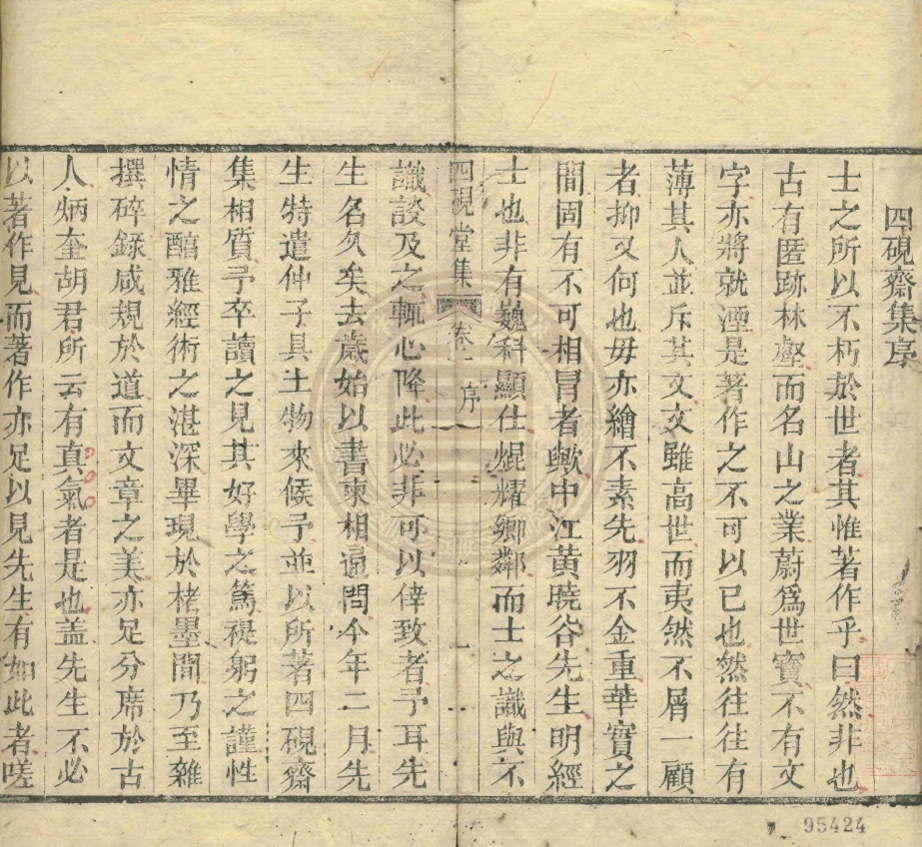 四硯齋集序
士之所以不朽於世者其惟著作乎曰然非也
古有匿跡林壑而名山之業蔚爲世寶不有文
字亦將就湮是著作之不可以已也然往往有
薄其人並斥其文文雖高世而夷然不屑一顧
者抑又何也毋亦繪不素先羽不金重華實之
間固有不可相冒者歟中江黃曉谷先生明經
士也非有巍科顯仕焜耀鄉鄰而士之識與不
四硯堂集 卷一 序 一
識談及之輒心降此必非可以倖致者予耳先
生名久矣去歲始以書柬相通問今年二月先
生特遣仲子具土物來候予並以所著四硯齋
集相質予卒讀之見其好學之篤禔躬之謹性
情之醇雅經術之湛深畢現於楮墨間乃至雜
撰碎錄咸規於道而文章之美亦足分席於古
人炳奎胡君所云有真氣者是也蓋先生不必
以著作見而著作亦足以見先生有如此者嗟
95424